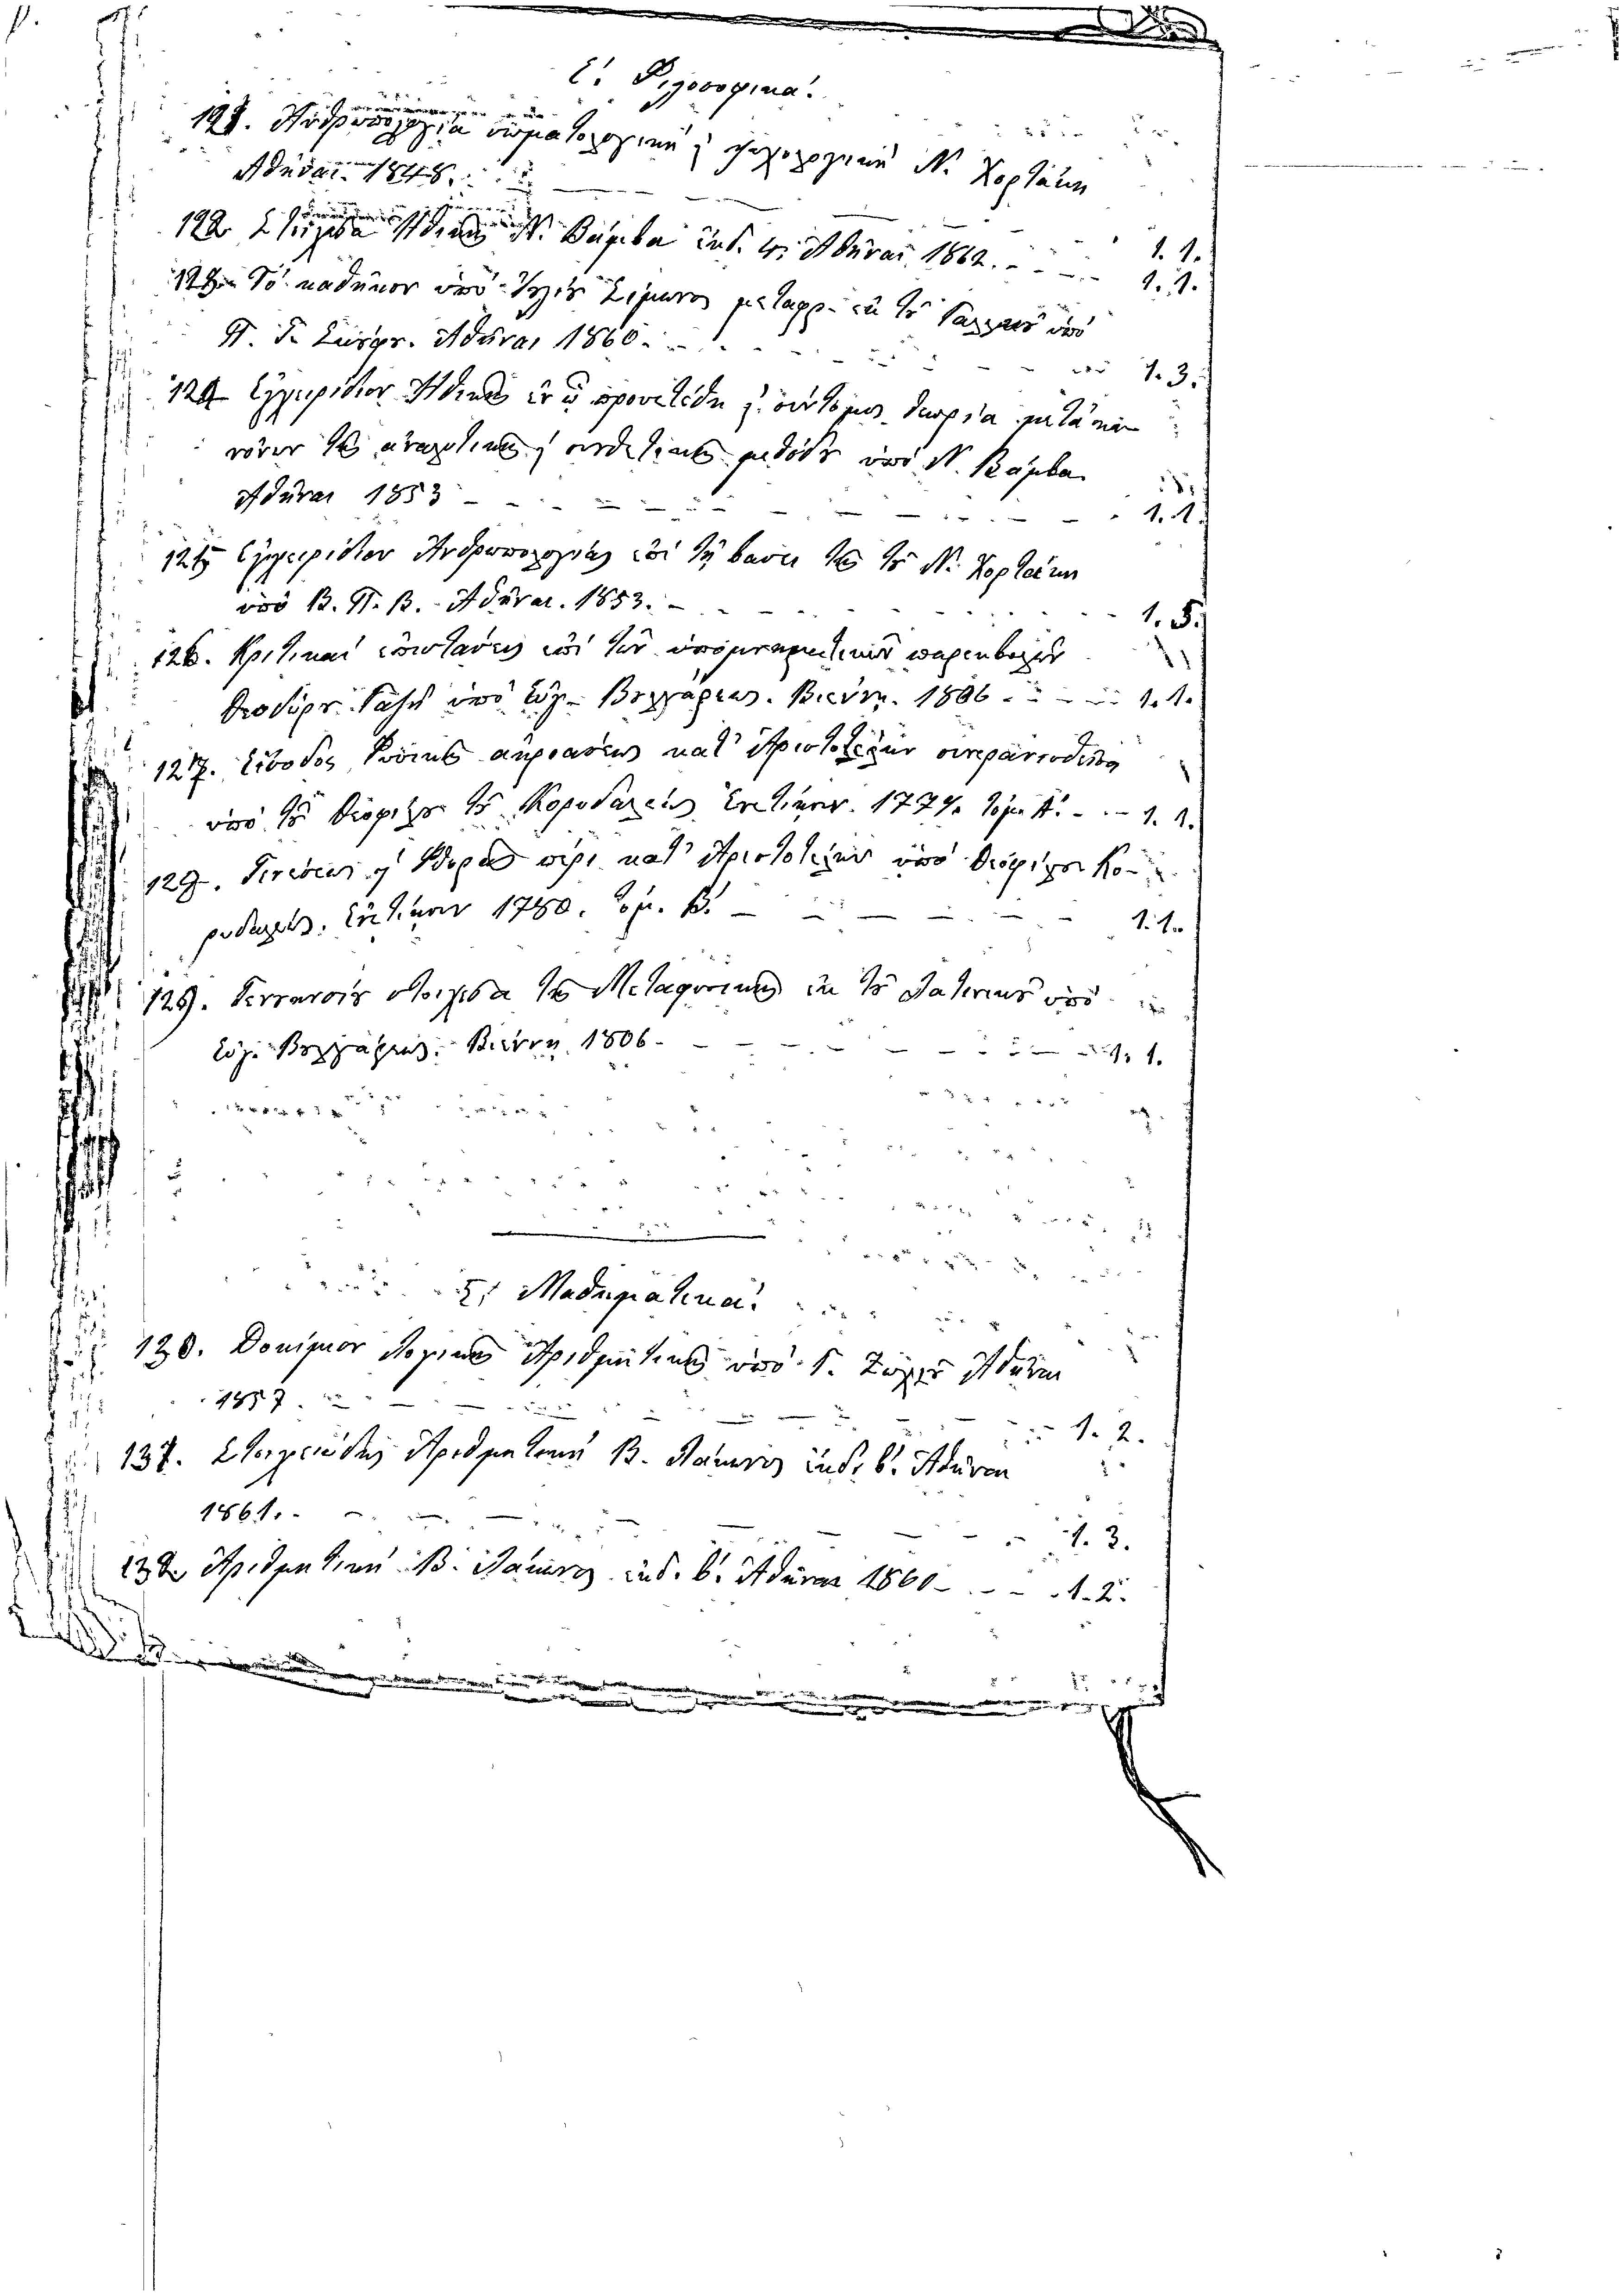 Ε΄. Φιλοσοφικά.
121. Ἀνθρωπολογία σωματολογική καὶ ψυχολογική Ν. Χορτάκη
Ἀθῆναι. 1848. 1. 1.
122 Στοιχεῖα Ἠθικῆς Ν. Βάμβα ἔκδ. Ἀθῆναι 1862. 1. 1.
123 Τὸ καθῆκον ὑπὸ Ἰουλίου Σίμωνος μεταφρ. ἐκ τοῦ Γαλλικοῦ ὑπὸ
Π. Γ. Ἀθῆναι 1860. 1. 3.
124 Ἐγχειρίδιον Ἠθικῆς ἐν ᾧ προσετέθη καὶ σύντομος θεωρία μετὰ κα-
νόνων τῆς ἀναλυτικῆς καὶ συνθετικῆς μεθόδου ὑπὸ Ν. Βάμβα
Ἀθῆναι 1853 1. 1.
125 Ἐγχειρίδιον Ἀνθρωπολογίας ἐπὶ τῇ βάσει τῆς τοῦ Ν. Χορτάκη
ὑπὸ Β. Π. Β. Ἀθῆναι. 1853. 1. 5.
126. Κριτικαὶ ἐπιστάσεις ἐπὶ τῶν ὑπομνηματικῶν παρεκβολῶν
Θεοδώρου Γαζῆ ὑπὸ Εὐγ. Βουλγάρεως. Βιέννη. 1806 1. 1.
127. Εἴσοδος Φυσικῆς ἀκροάσεως κατ' Ἀριστοτέλην συνερανισθεῖσα
ὑπὸ τοῦ Θεοφίλου τοῦ Κορυδαλέως Ἐνετίῃσιν. 1779. τόμ. Α΄. 1. 1.
128. Γενέσεως καὶ Φθορᾶς περὶ κατ' Ἀριστοτέλην ὑπὸ Θεοφίλου Κο-
ρυδαλέως. Ἐνετίῃσιν 1780. τόμ. Β΄. 1. 1.
129. Γεννησίου στοιχεῖα τῆς Μεταφυσικῆς ἐκ τοῦ Λατινικοῦ ὑπὸ
Εὐγ. Βουλγάρεως. Βιέννη. 1806 1. 1.
Ϛ΄ Μαθηματικά.
130. Δοκίμιον Λογικῆς Ἀριθμητικῆς ὑπὸ Γ. Ζώχιου Ἀθῆναι
1857. 1. 2.
131. Στοιχειώδης Ἀριθμητικὴ Β. Λάκωνος ἔκδ. β΄. Ἀθῆναι
1861. 1. 3.
132 Ἀριθμητικὴ Β. Λάκωνος ἔκδ. β΄. Ἀθῆναι 1860 1. 2.